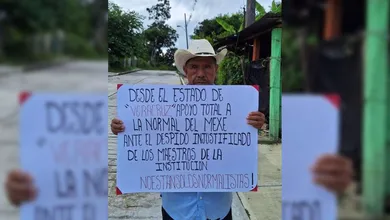 DESDE EL ESTADO DE
"VERACRUZ" APOYO TOTAL A
LA NORMAL DEL MEXE
ANTE EL DESPIDO INJUSTIFICADO
DE LOS MAESTROS DE LA
INSTITUCION
NOESTANSOLOSNORMALISTAS!